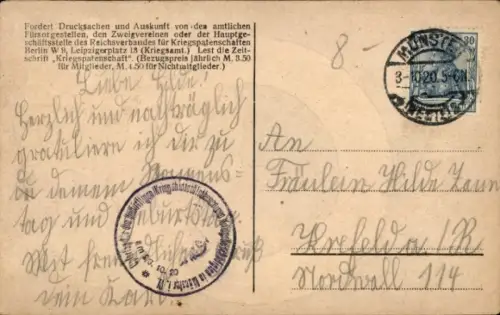 Fordert Drucksachen und Auskunft von den amtlichen
Fürsorgestellen, den Zweigvereinen oder der Hauptge-
schäftsstelle des Reichsverbandes für Kriegspatenschaften
Berlin W 8, Leipzigerplatz 13 (Kriegsamt.) Lest die Zeit-
schrift „Kriegspatenschaft". (Bezugspreis jährlich M. 3.50
für Mitglieder, M. 4.50 für Nichtmitglieder.)
8-
MÜNSTER
3-10 20. 5-6N
(WESTF)
30
Liebe Hilde!
Herzlich und nachträglich
gratuliere ich dir zu
deinem Namens-
tag und Geburtstag.
Mit
dein Karl
10. 20
An
Fräulein Hilde
Krefeld a/R.
Nordwall 114